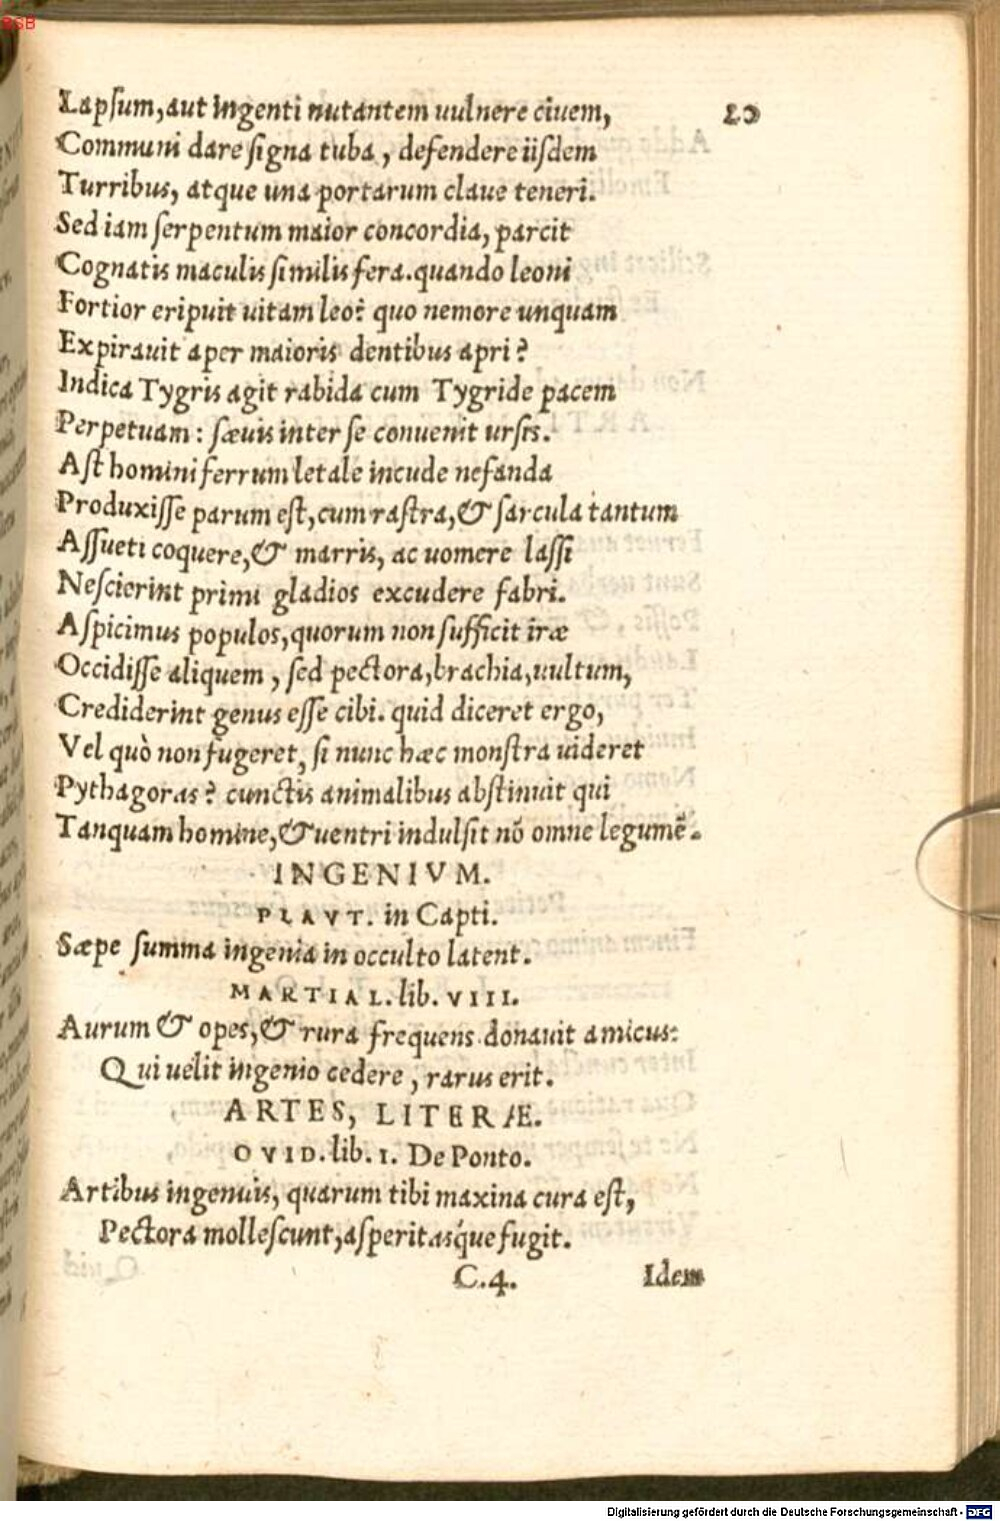 BSB
20
Lapſum, aut ingenti nutantem uulnere ciuem,
Communi dare ſigna tuba, defendere iiſdem
Turribus, atque una portarum claue teneri.
Sed iam ſerpentum maior concordia, parcit
Cognatis maculis ſimilis fera. quando leoni
Fortior eripuit uitam leo? quo nemore unquam
Expirauit aper maioris dentibus apri?
Indica Tygris agit rabida cum Tygride pacem
Perpetuam: ſæuis inter ſe conuenit urſis.
Aſt homini ferrum letale incude nefanda
Produxiſſe parum eſt, cum raſtra, & ſarcula tantum
Aſſueti coquere, & marris, ac uomere laſſi
Neſcierint primi gladios excudere fabri.
Aſpicimus populos, quorum non ſufficit iræ
Occidiſſe aliquem, ſed pectora, brachia, uultum,
Crediderint genus eſſe cibi. quid diceret ergo,
Vel quò non fugeret, ſi nunc hæc monſtra uideret
Pythagoras? cunctis animalibus abſtinuit qui
Tanquam homine, & uentri indulſit nõ omne legumẽ.
INGENIVM.
PLAVT. in Capti.
Sæpe ſumma ingenia in occulto latent.
MARTIAL. lib. VIII.
Aurum & opes, & rura frequens donauit amicus:
Qui uelit ingenio cedere, rarus erit.
ARTES, LITERÆ.
OVID. lib. I. De Ponto.
Artibus ingenuis, quarum tibi maxina cura eſt,
Pectora molleſcunt, aſperitasq́ue fugit.
C.4. Idem
Digitalisierung gefördert durch die Deutsche Forschungsgemeinschaft - DFG